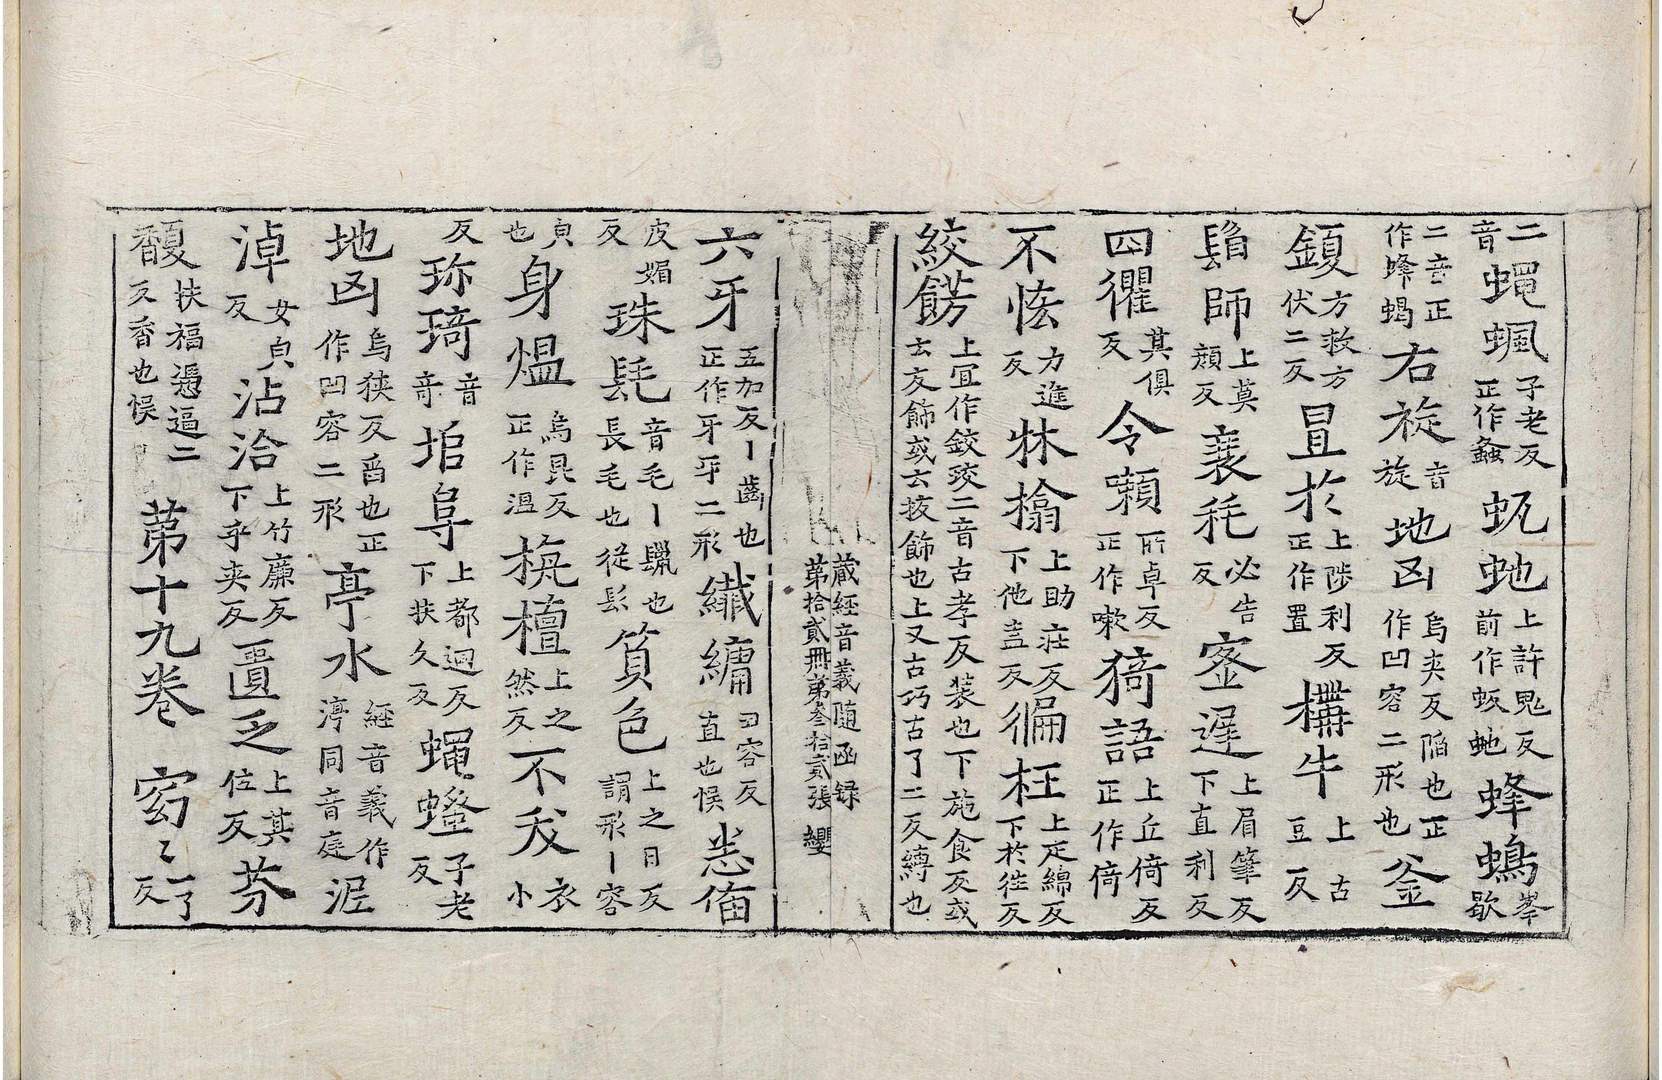 二音蝿䖢子老反正作蚤蚖虵上許鬼反前作蚖虵蜂蝎峯歇
二音正作蜂蝎右旋音旋地凶烏夾反陷也正作凹容二形也釜
鍑方救方伏二反罝於上陟利反正作置構牛上古豆反
師上莫顏反裹毦必告反宻遟上眉筆反下直利反
四懼其俱反令㖽所卓反正作嗽猗語上丘倚反正作倚
不恡力進反牀㩉上助庄反下他盍反徧枉上疋綿反下於往反
絞餝上宜作鉸珓二音古孝反装也下施食反或去文飾或云抜飾也上又古巧古了二反縛也
藏經音義随函録第拾貳冊第叁拾貳張纓
六牙五加反丨齒也正作牙㸦二形纖𦟛丑容反直也悮恙
皮媚反珠髦音毛丨鬣也長毛也從髟質色上之日反謂形丨容
㒵也身熅烏昆反正作温栴檀上之然反不𣧑衣小
反珎琦音奇塠阜上都迴反下扶久反蝿螘子老反
地凶烏狹反酉也正作凹容二形亭水經音義作渟同音庭泥
淖女皃反沾洽上竹廉反下乎夾反匱乏上其位反芬
馥扶福憑逼二反香也悮第十九卷窈〻一了反